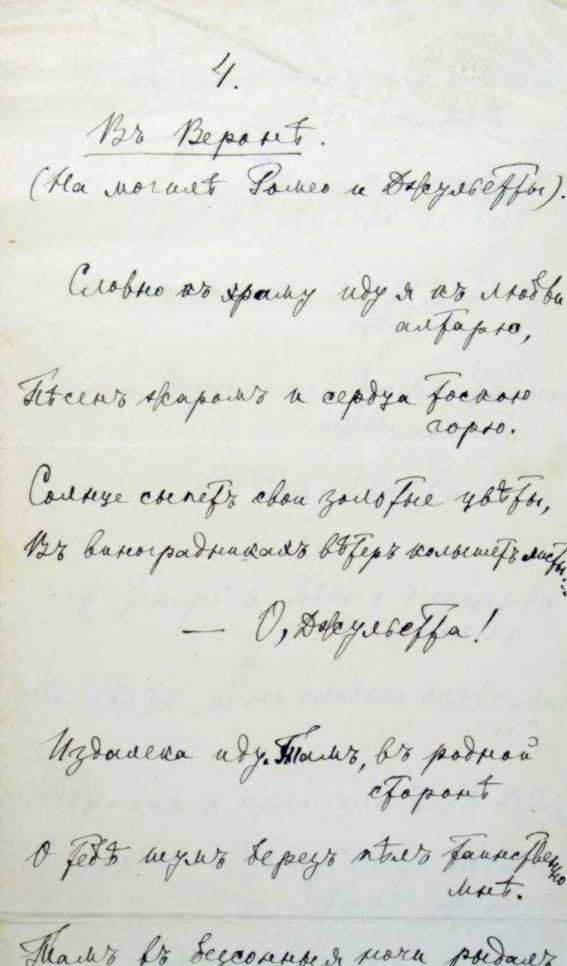 4.
Въ Веронѣ.
(На могилѣ Ромео и Джульетты).
Словно къ храму иду я къ любви
алтарю,
Пѣсенъ жаромъ и сердца тоскою
горю.
Солнце сыпетъ свои золотые цвѣты,
Въ виноградникахъ вѣтеръ колышетъ листы...
— О, Джульетта!
Издалека иду. Тамъ, въ родной
сторонѣ
О тебѣ шумъ березъ пѣлъ таинственно
мнѣ.
Тамъ въ безсонныя ночи рыдалъ